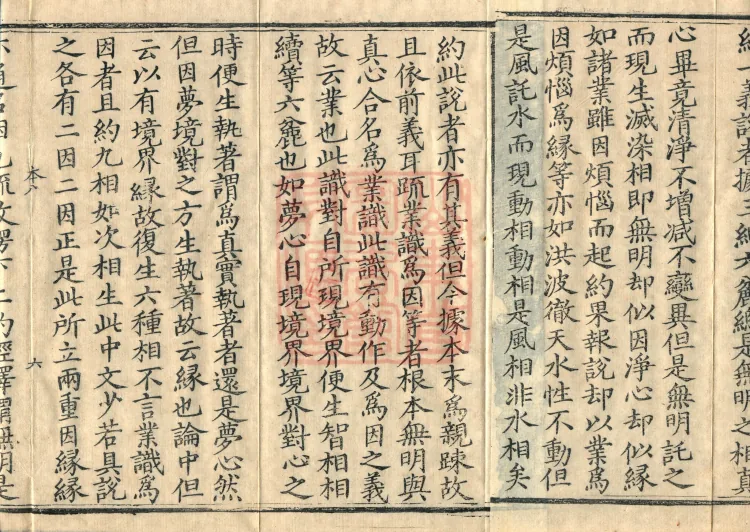 心畢竟清淨不增減不變異但是無明託之
而現生滅染相即無明却似因淨心却似緣
如諸業雖因煩惱而起約果報說却以業爲
因煩惱爲緣等亦如洪波徹天水性不動但
是風託水而現動相動相是風相非水相矣
約此說者亦有其義但今據本末爲親踈故
且依前義耳䟽業識爲因等者根本無明與
真心合名爲業識此識有動作及爲因之義
故云業也此識對自所現境界便生智相相
續等六麁也如夢心自現境界境界對心之
時便生執著謂爲真實執著者還是夢心然
但因夢境對之方生執著故云緣也論中但
云以有境界緣故復生六種相不言業識爲
因者且約九相如次相生此中文少若具說
之各有二因二因正是此所立兩重因緣緣
本八 六